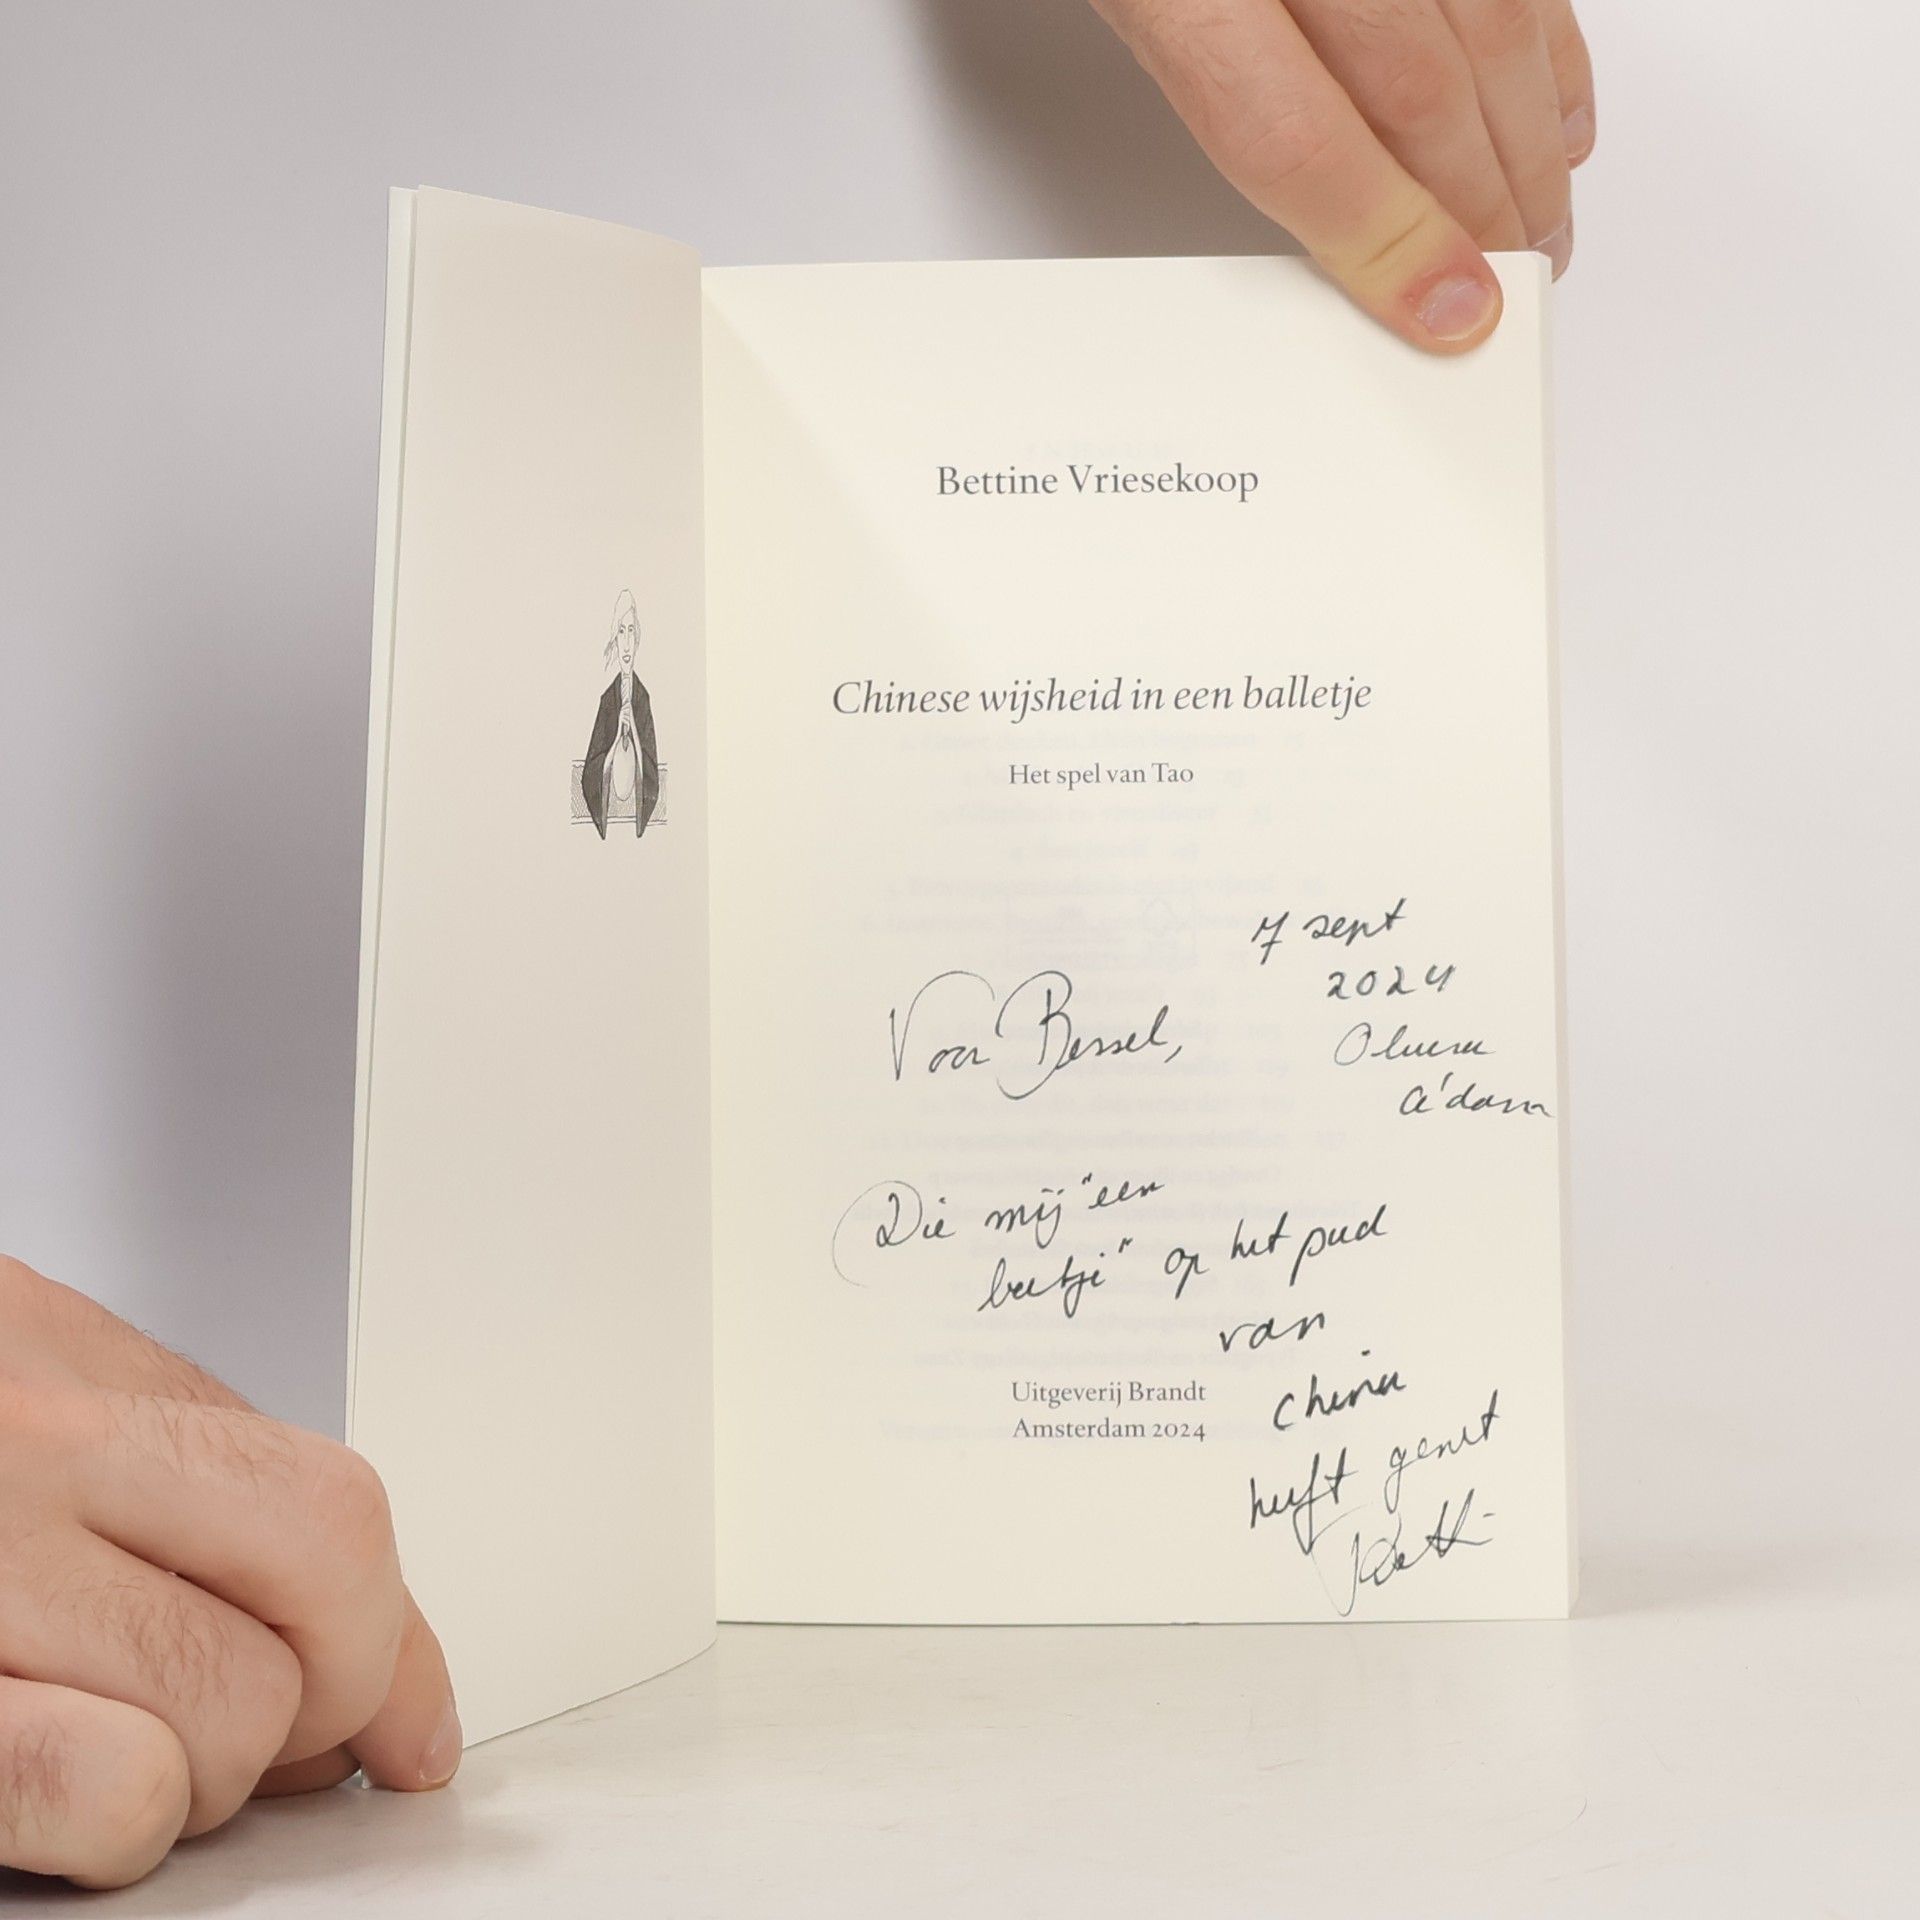 Bettine Vriesekoop
Chinese wijsheid in een balletje
Het spel van Tao
7 sept
2024
A'dam
Voor Bessel,
Die mij "een
beetje" op het pad
van
China
heeft gezet
Uitgeverij Brandt
Amsterdam 2024